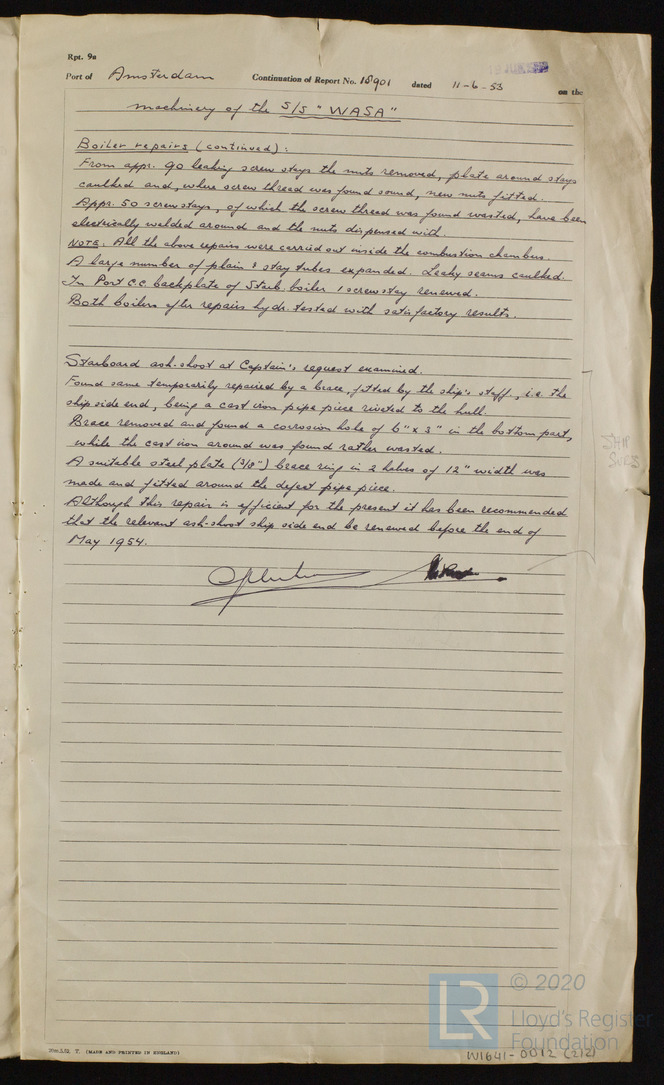 Rpt. 9a
Port of Amsterdam Continuation of Report No. 18901 dated 11-6-53 on the
machinery of the S/S "WASA"
Boiler repairs (continued):
From appr. 90 leaking screw stays the nuts removed, plate around stays
caulked and, where screw thread was found sound, new nuts fitted.
Appr. 50 screwstays, of which the screw thread was found wasted, have been
electrically welded around and the nuts dispensed with.
NOTE: All the above repairs were carried out inside the combustion chambers.
A large number of plain & stay tubes expanded. Leaky seams caulked.
In Port c.c. backplate of Starb. boiler 1 screwstay renewed.
Both boilers after repairs hydr. tested with satisfactory results.
Starboard ash-shoot at Captain's request examined.
Found same temporarily repaired by a brace, fitted by the ship's staff, i.e. the
ship side end, being a cast iron pipe piece riveted to the hull.
Brace removed and found a corrosion hole of 6" x 3" in the bottom part,
while the cast iron around was found rather wasted.
A suitable steel plate (3/8") brace ring in 2 halves of 12" width was
made and fitted around the defect pipe piece.
Although this repair is efficient for the present it has been recommended
that the relevant ash-shoot ship side end be renewed before the end of
May 1954.
SHIP
SURS
T. (MADE AND PRINTED IN ENGLAND)
LR
© 2020
Lloyd's Register
Foundation
W1641-0012 (2/2)